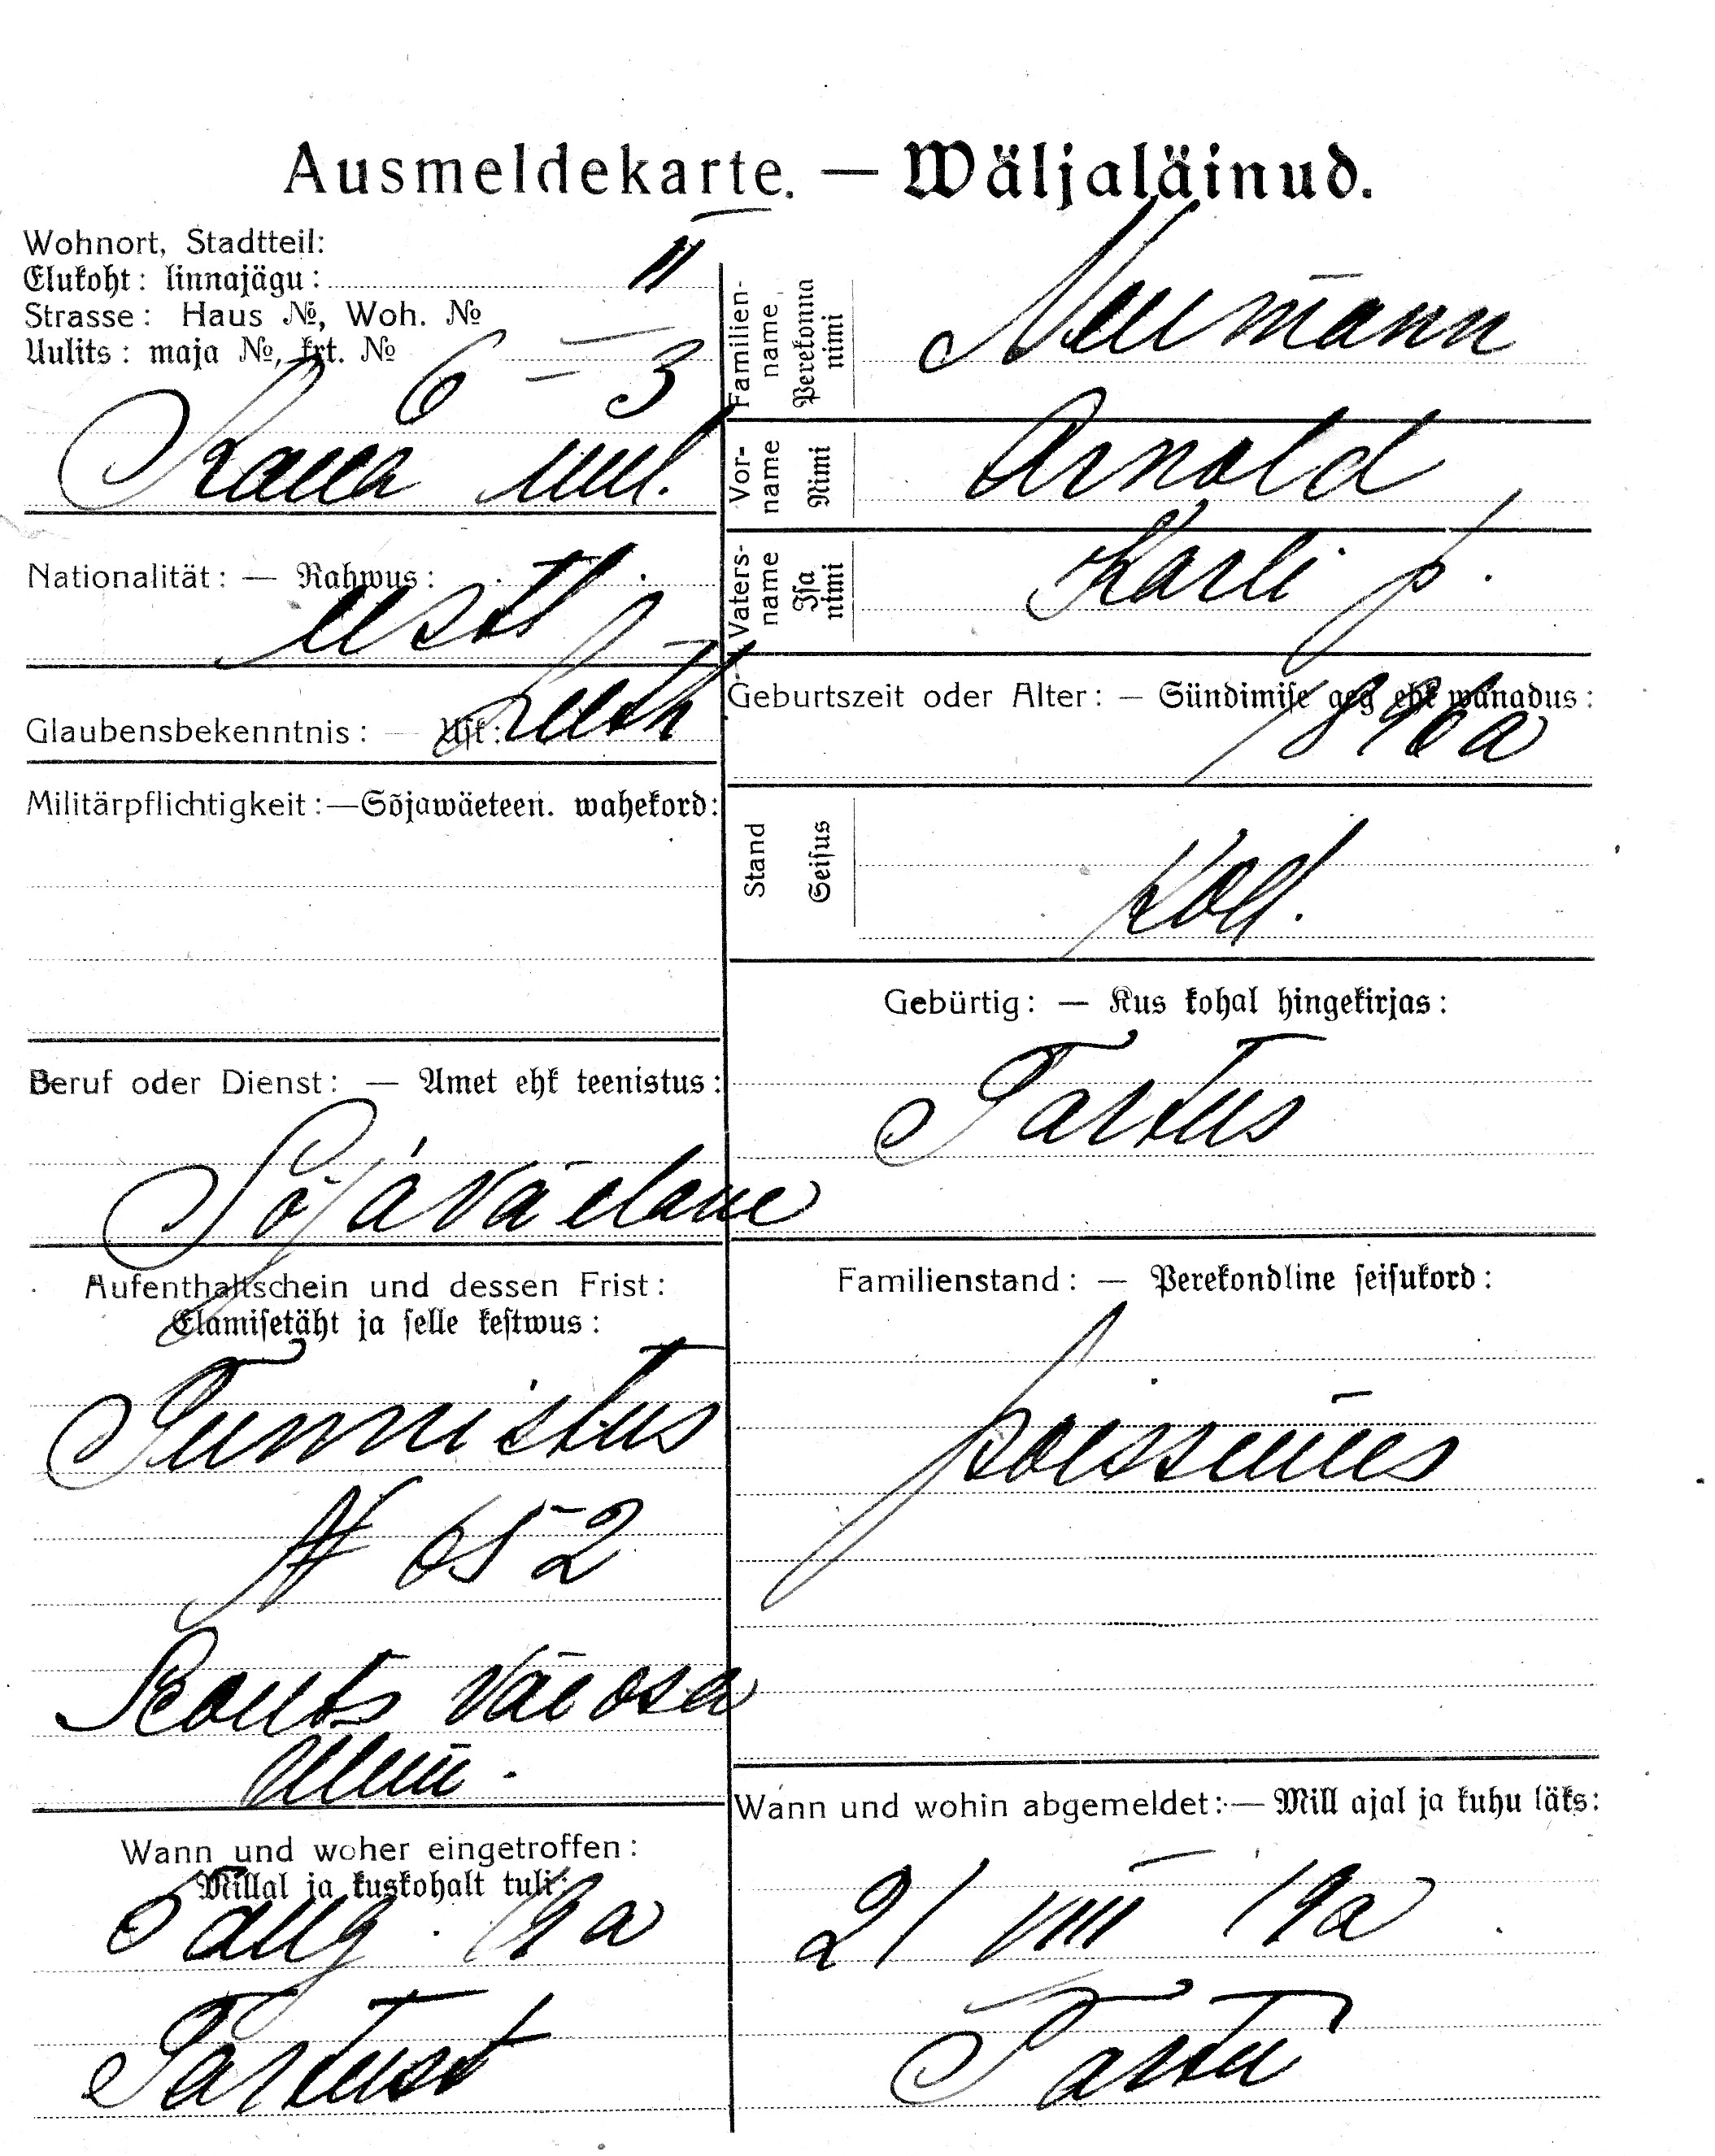 Ausmeldekarte. — Wäljaläinud.
Wohnort, Stadtteil:
Elukoht: linnajägu: II
Strasse: Haus №, Woh. №
Uulits: maja №, krt. № 6 – 3
uul.
Nationalität: — Rahwus:
eesti
Glaubensbekenntnis: — Usk: Luth
Militärpflichtigkeit: — Sõjawäeteen. wahekord:
Beruf oder Dienst: — Amet ehk teenistus:
Sõjaväelane
Aufenthaltschein und dessen Frist:
Elamisetäht ja selle kestwus:
Tunnistus
№ 652
väeosa
Wann und woher eingetroffen:
Millal ja kuskohalt tuli:
5 aug. 19 a
Tartust
Familien-
name
Perekonna
nimi
Neumann
Vor-
name
Nimi
Arnold
Vaters-
name
Isa
nimi
Karli p.
Geburtszeit oder Alter: — Sündimise aeg ehk wanadus:
1896 a
Stand
Seisus
Gebürtig: — Kus kohal hingekirjas:
Tartus
Familienstand: — Perekondline seisukord:
poissmees
Wann und wohin abgemeldet: — Mill ajal ja kuhu läks:
21 VIII 19 a
Tartu